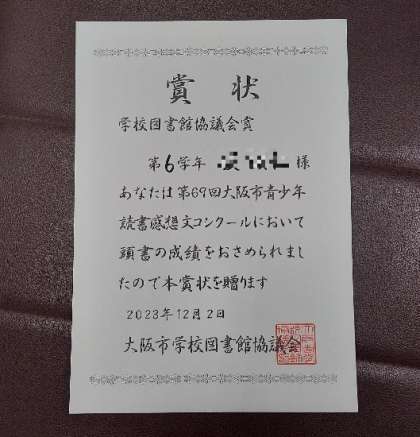 賞状
学校図書館協議会賞
第6学年 様
あなたは第69回大阪市青少年
読書感想文コンクールにおいて
頭書の成績をおさめられまし
たので本賞状を贈ります
2023年12月2日
大阪市学校図書館協議会